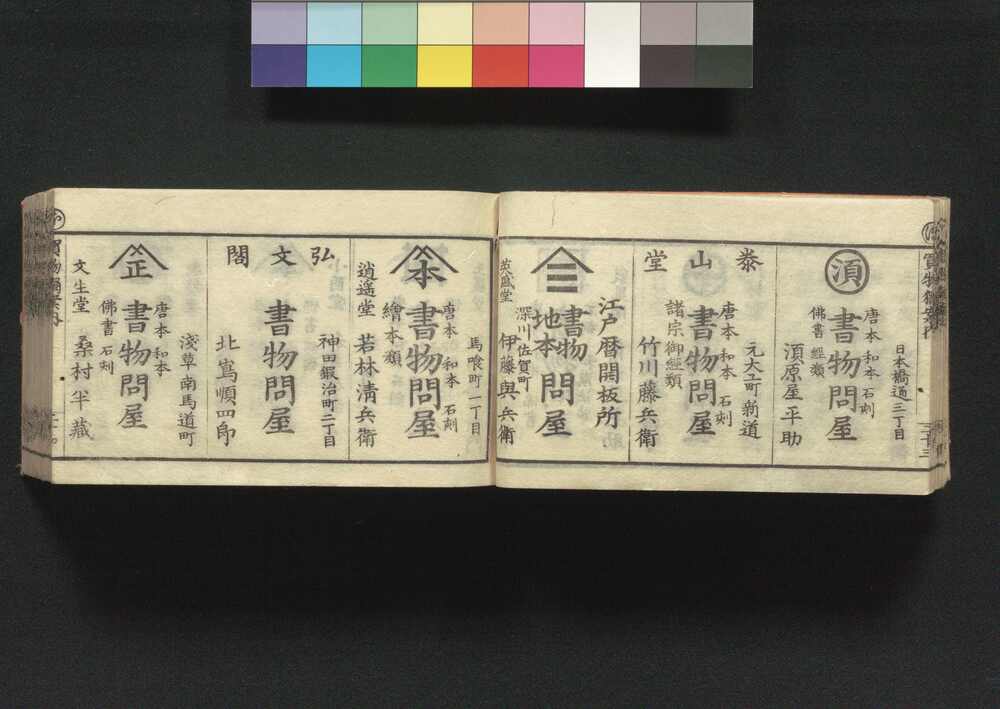 日本橋通三丁目
須
唐本 和本 石刻
書物問屋
佛書 經類
須原屋平助
泰山堂
元大工町新道
唐本 和本 石刻
書物問屋
諸宗御經類
竹川藤兵衛
江戸暦開板所
三
書物
地本
問屋
深川佐賀町
英盛堂
伊藤與兵衛
馬喰町一丁目
本
唐本 和本 石刻
書物問屋
繪本類
逍遥堂 若林清兵衛
弘文閣
神田鍛治町二丁目
書物問屋
北嶌順四郎
淺草南馬道町
正
唐本 和本
書物問屋
佛書 石刻
文生堂 桑村半藏